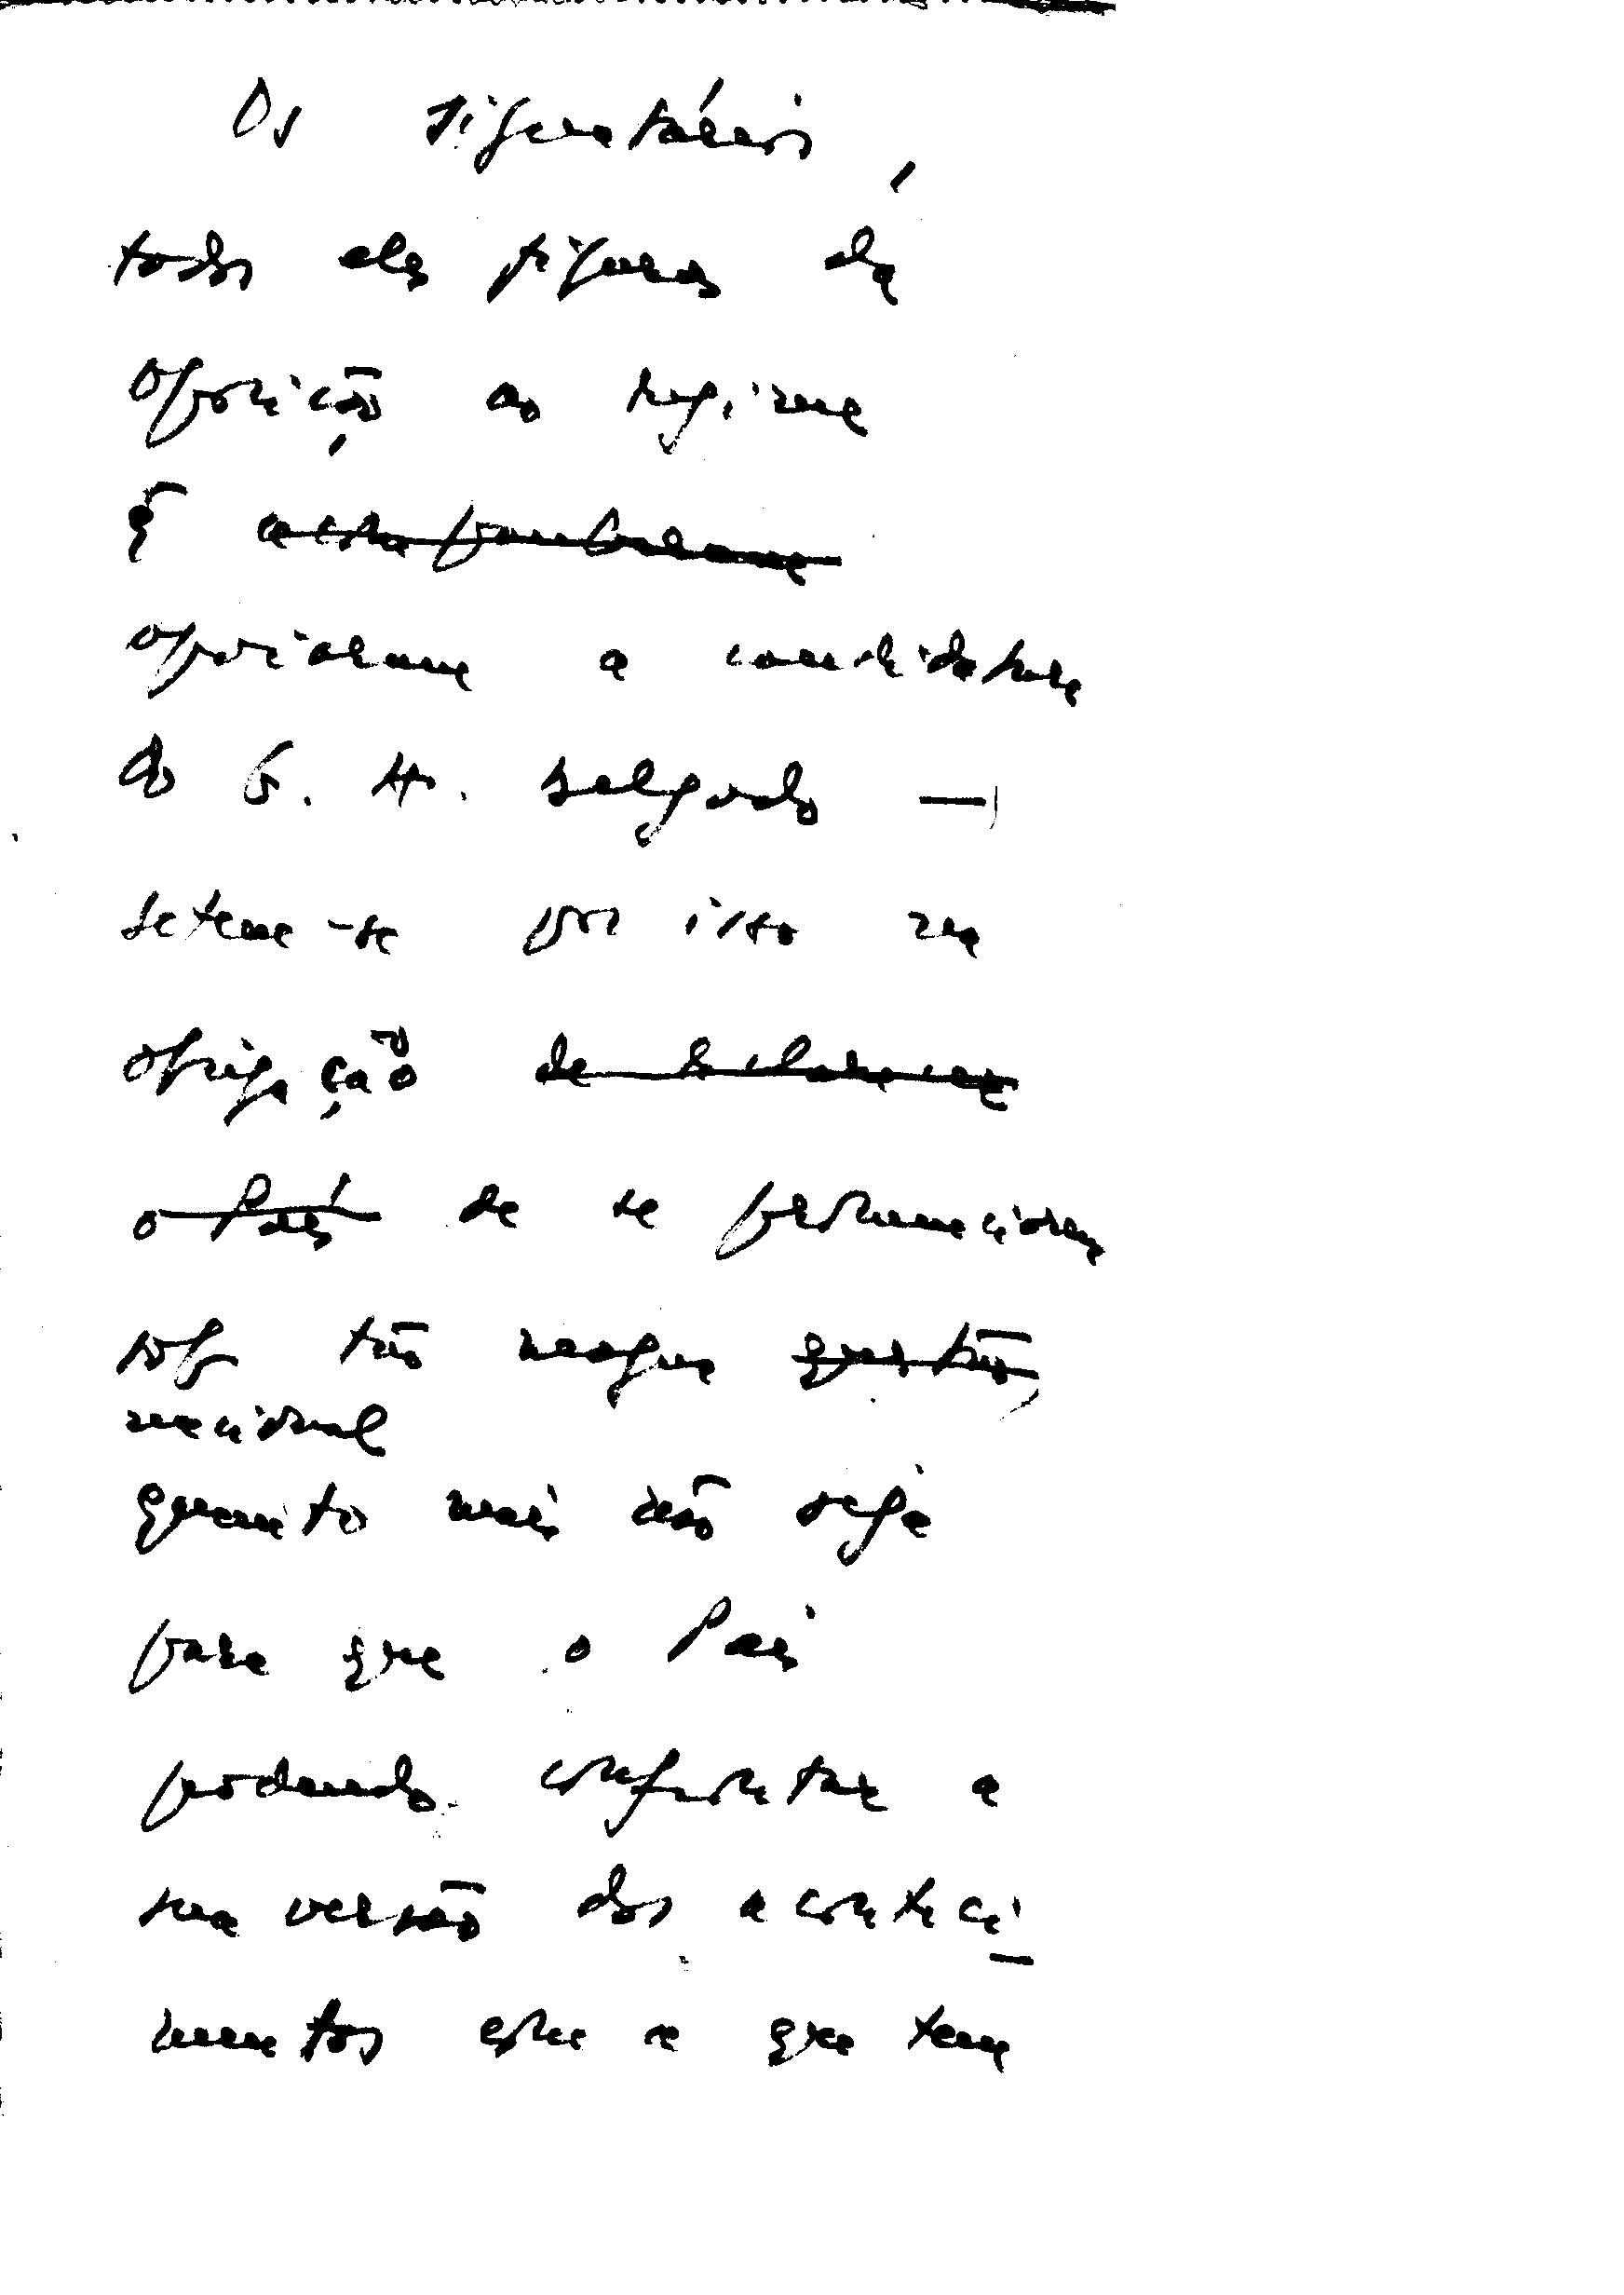 Os signatários,
todos eles figuras da
oposição ao regime
q̃ acompanharam
apoiaram a candidatura
do G. H. Delgado —,
sentem-se por isso na
obrigação de esclarecer
o País de se pronunciarem
sob tão magna questão,
nacional
quanto mais não seja
para que o País
podendo confrontar a
sua versão dos aconteci-
mentos com a que tem